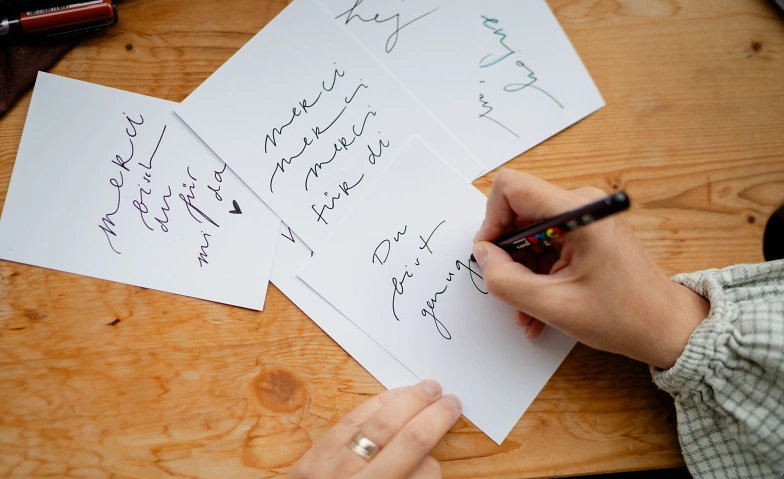 merci
bisch
du
für
mi da
merci
merci
merci
für di
hej
enjoy
Du
bist
genug